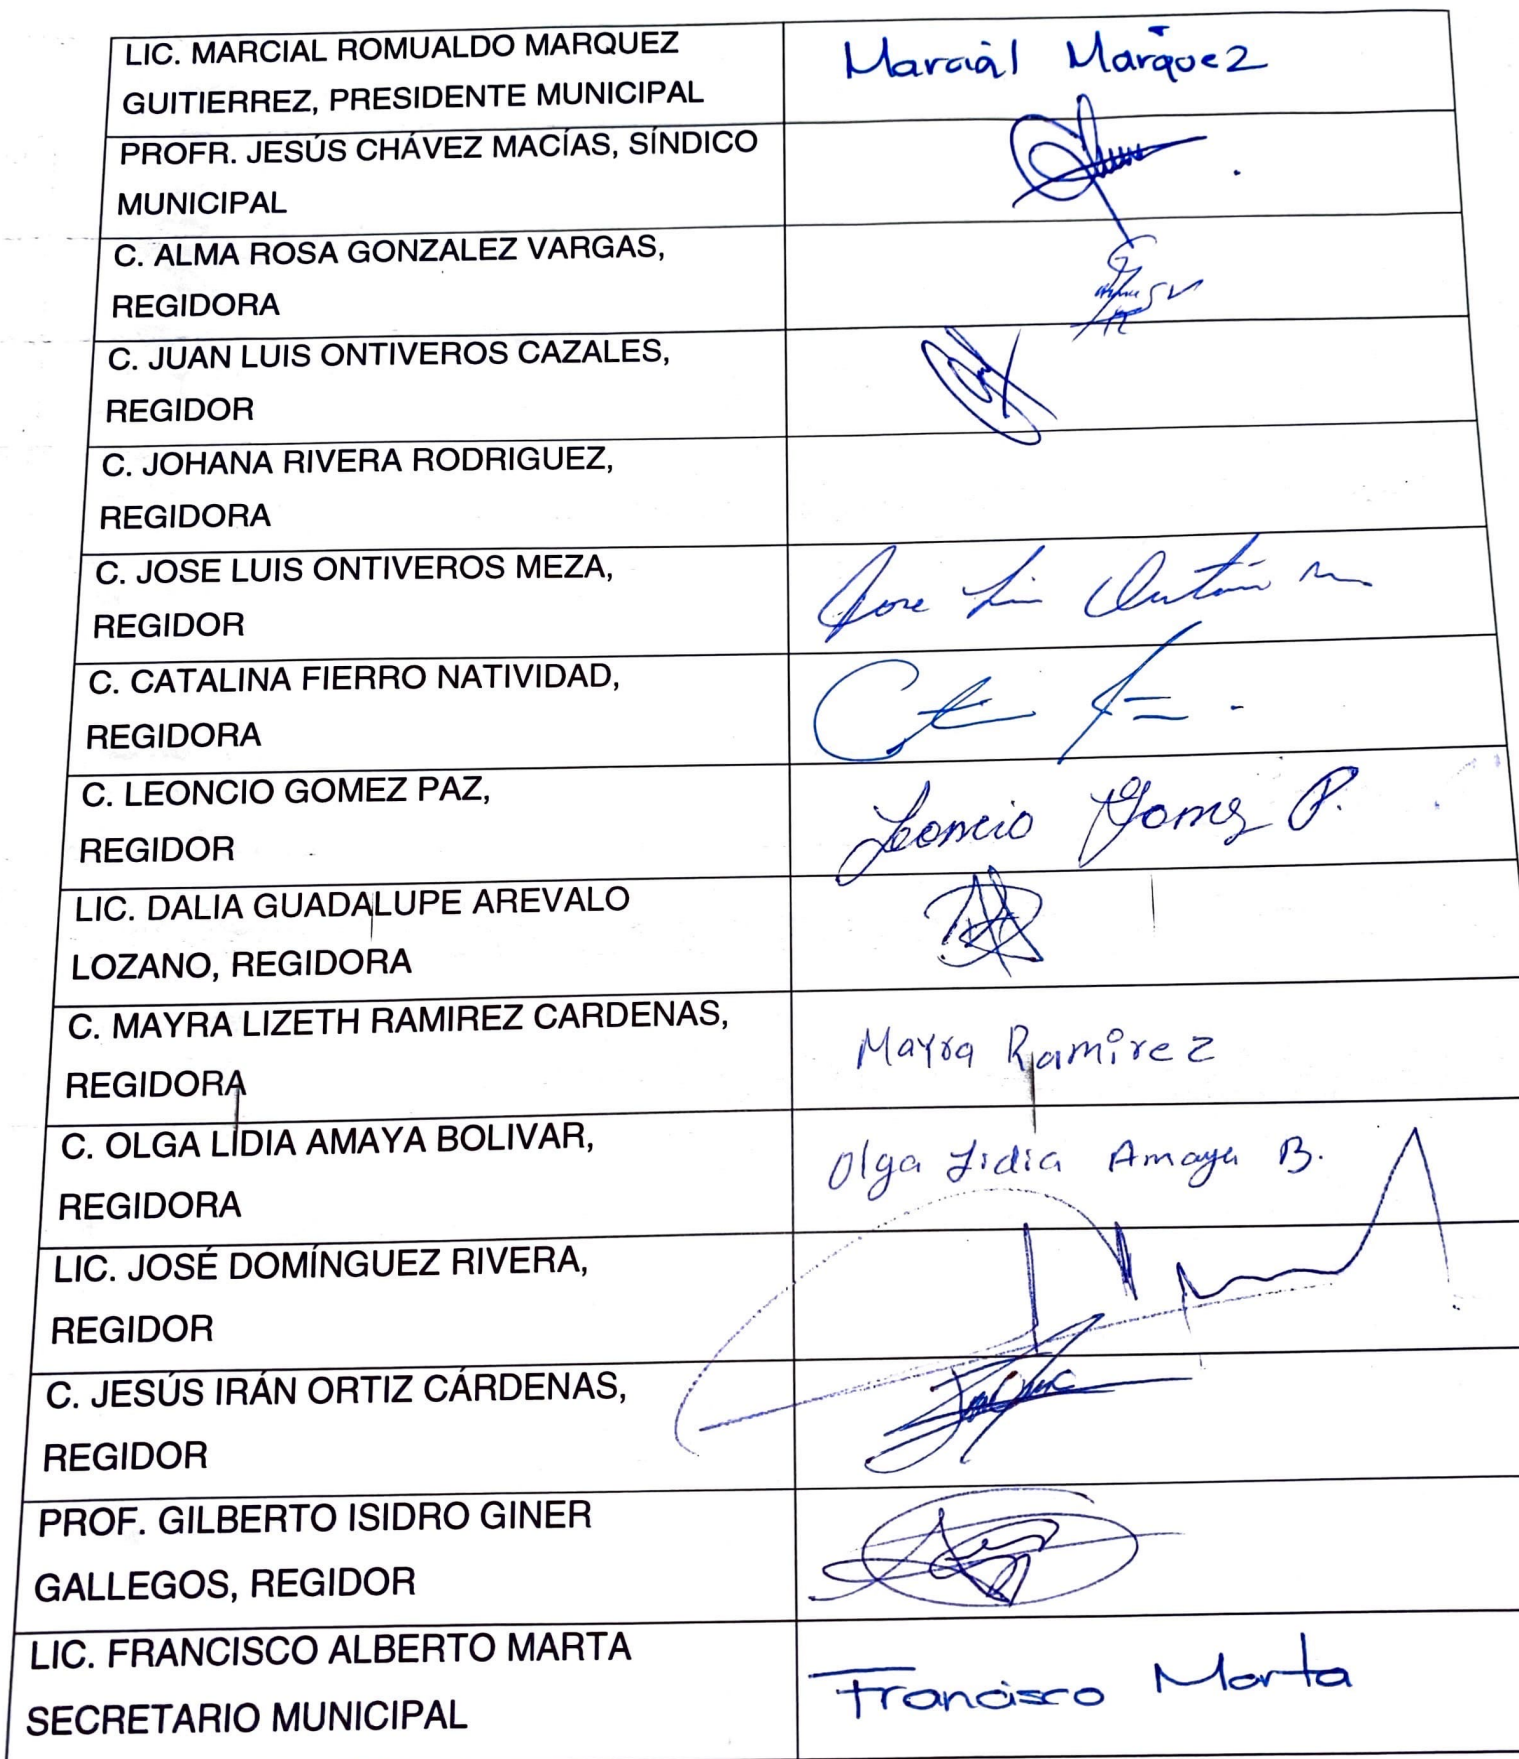 LIC. MARCIAL ROMUALDO MARQUEZ
GUITIERREZ, PRESIDENTE MUNICIPAL
Marcial Marquez
PROFR. JESÚS CHÁVEZ MACÍAS, SÍNDICO
MUNICIPAL
C. ALMA ROSA GONZALEZ VARGAS,
REGIDORA
C. JUAN LUIS ONTIVEROS CAZALES,
REGIDOR
C. JOHANA RIVERA RODRIGUEZ,
REGIDORA
C. JOSE LUIS ONTIVEROS MEZA,
REGIDOR
Jose Luis
C. CATALINA FIERRO NATIVIDAD,
REGIDORA
C. LEONCIO GOMEZ PAZ,
REGIDOR
Leoncio Gomez P.
LIC. DALIA GUADALUPE AREVALO
LOZANO, REGIDORA
C. MAYRA LIZETH RAMIREZ CARDENAS,
REGIDORA
Mayra Ramirez
C. OLGA LIDIA AMAYA BOLIVAR,
REGIDORA
Olga Lidia Amaya B.
LIC. JOSÉ DOMÍNGUEZ RIVERA,
REGIDOR
C. JESÚS IRÁN ORTIZ CÁRDENAS,
REGIDOR
PROF. GILBERTO ISIDRO GINER
GALLEGOS, REGIDOR
LIC. FRANCISCO ALBERTO MARTA
SECRETARIO MUNICIPAL
Francisco Marta